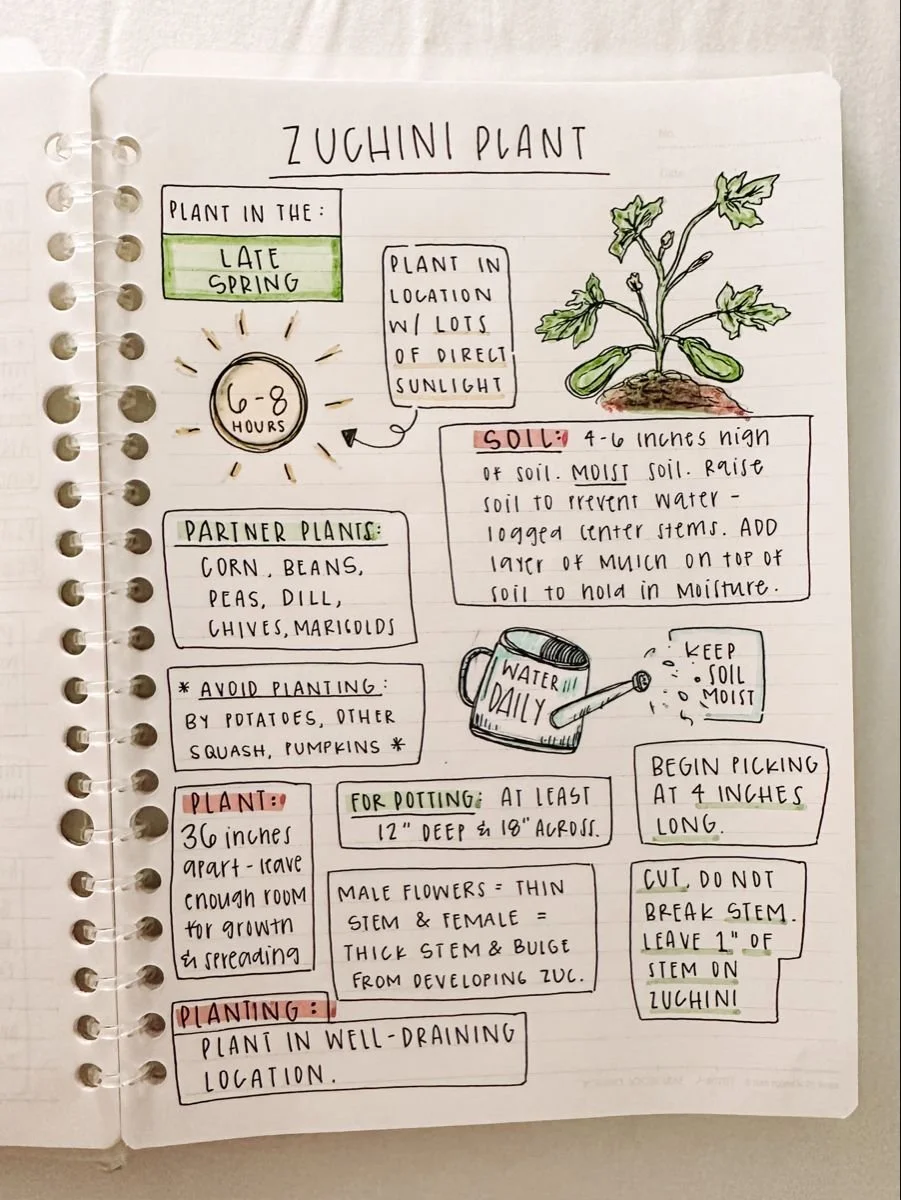 ZUCHINI PLANT
PLANT IN THE:
LATE
SPRING
PLANT IN
LOCATION
W/ LOTS
OF DIRECT
SUNLIGHT
6-8
HOURS
SOIL: 4-6 inches high
of soil. MOIST soil. Raise
soil to prevent water-
logged center stems. ADD
layer of mulch on top of
soil to hold in moisture.
PARTNER PLANTS:
CORN, BEANS,
PEAS, DILL,
CHIVES, MARIGOLDS
WATER
DAILY
KEEP
SOIL
MOIST
* AVOID PLANTING:
BY POTATOES, OTHER
SQUASH, PUMPKINS *
BEGIN PICKING
AT 4 INCHES
LONG.
PLANT:
36 inches
apart - leave
enough room
for growth
& spreading
FOR POTTING: AT LEAST
12" DEEP & 18" ACROSS.
MALE FLOWERS = THIN
STEM & FEMALE =
THICK STEM & BULGE
FROM DEVELOPING ZUC.
CUT, DO NOT
BREAK STEM.
LEAVE 1" OF
STEM ON
ZUCHINI
PLANTING:
PLANT IN WELL-DRAINING
LOCATION.